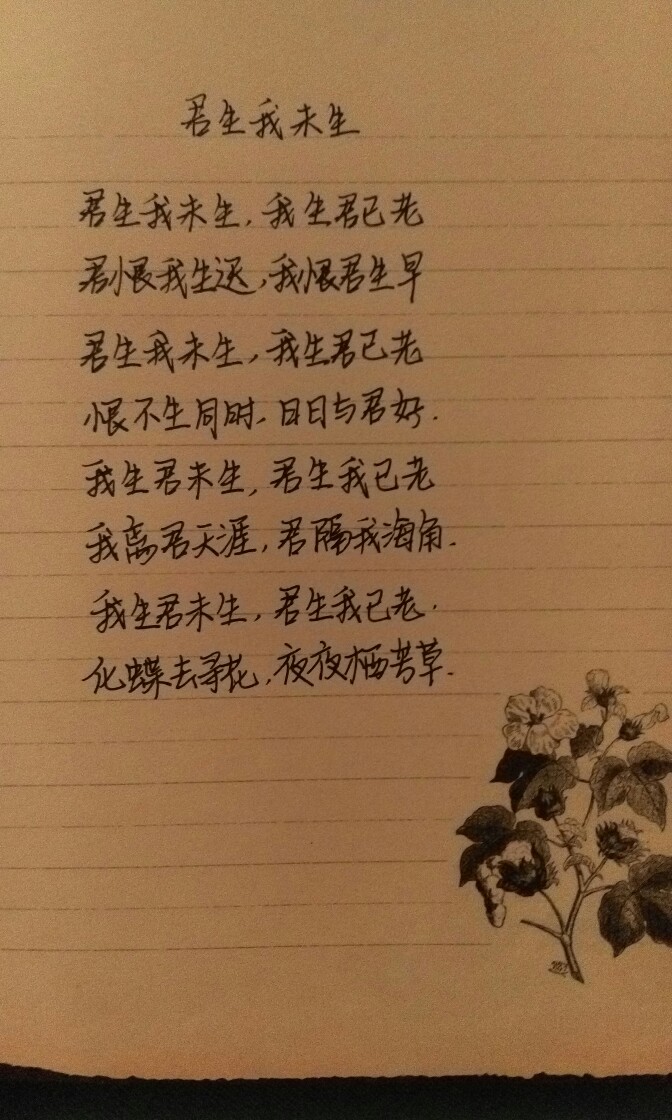 君生我未生
君生我未生，我生君已老
君恨我生迟，我恨君生早
君生我未生，我生君已老
恨不生同时，日日与君好．
我生君未生，君生我已老
我离君天涯，君隔我海角．
我生君未生，君生我已老．
化蝶去寻花，夜夜栖芳草．